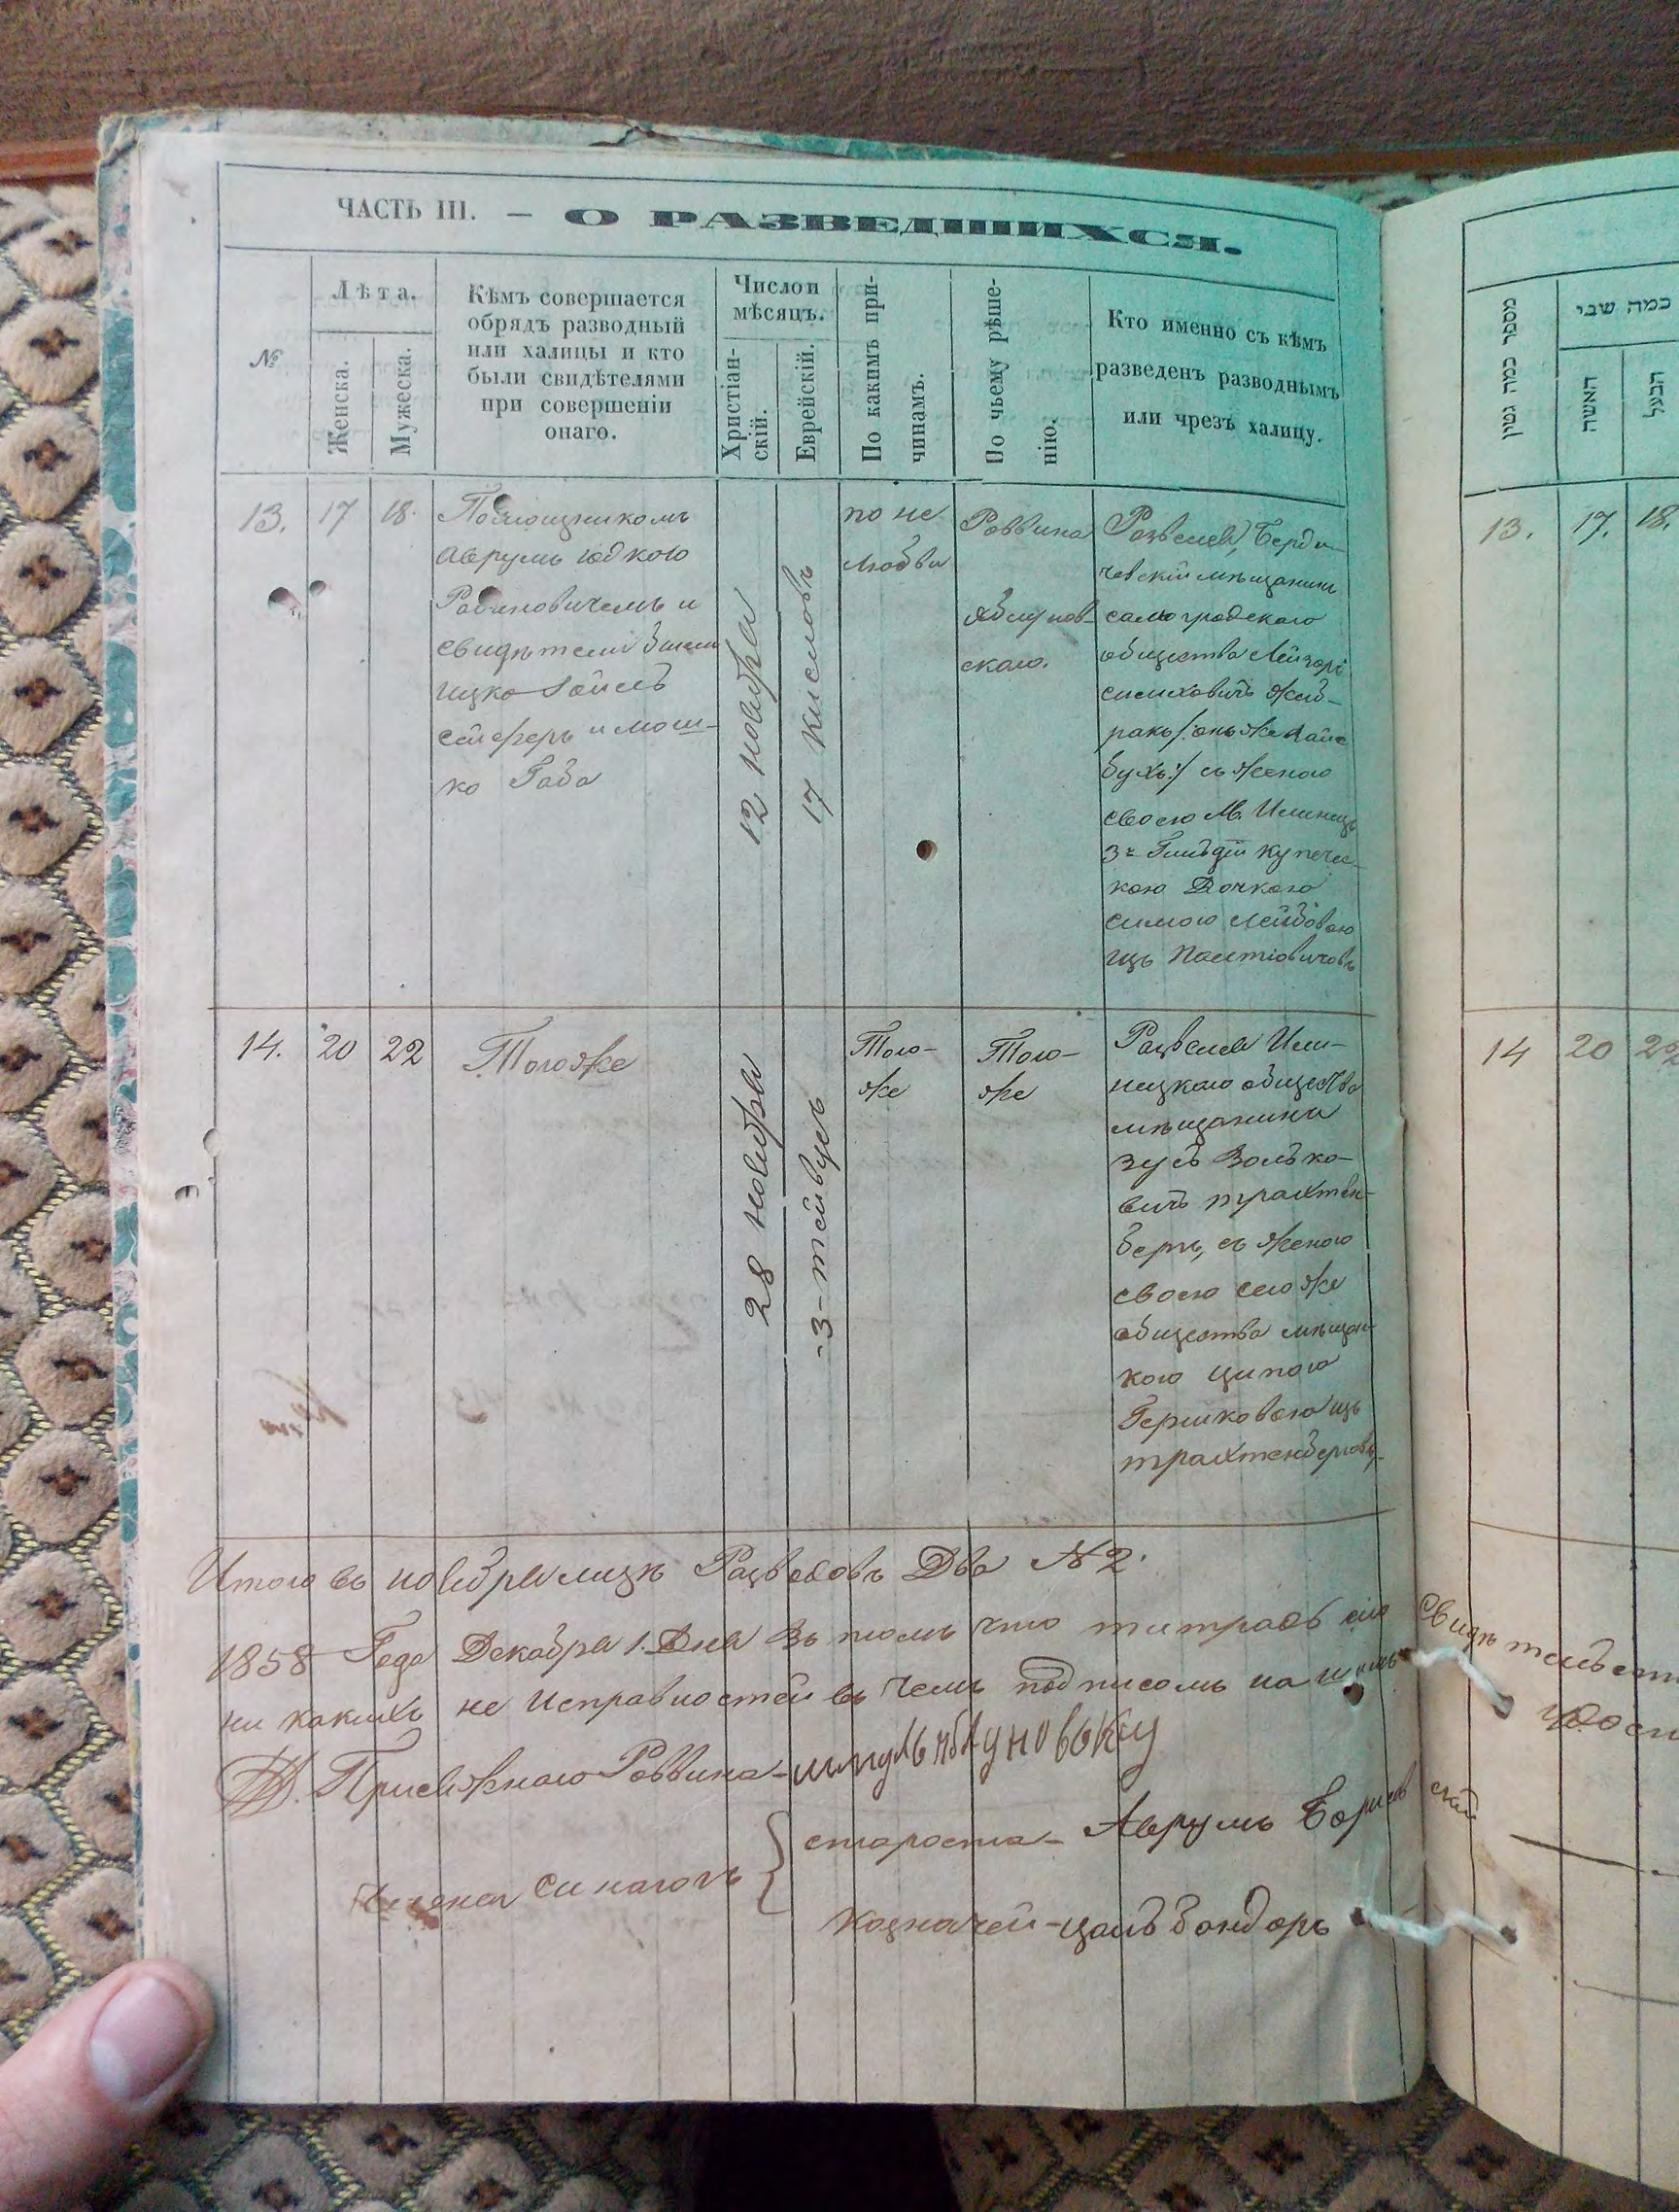 ЧАСТЬ III. — О РАЗВЕДШИХСЯ.
№
Лѣта.
Женска.
Мужеска.
Кѣмъ совершается
обрядъ разводный
или халицы и кто
были свидѣтелями
при совершеніи
онаго.
Число и
мѣсяцъ.
Христіан-
скій.
Еврейскій.
По какимъ при-
чинамъ.
По чьему рѣше-
нію.
Кто именно съ кѣмъ
разведенъ разводнымъ
или чрезъ халицу.
13.
17
18.
Помощникомъ
Аврумъ Юдкою
Рабиновичемъ и
свидѣтели
ицко
сейферъ и мош-
ко Габа
12 ноября
17 кислювъ
по не
любви
Раввина
Яблунов-
скаго.
Развелся, Берди-
чевскій мѣщанинъ
самогродскаго
общества Лейзоръ
/: онъ же
бухъ :/ съ женою
своею М. Илинецъ
3й Гильдіи купечес-
кою Дочкою
симою Лейбовою
изъ
14.
20
22
Тогоже
28 ноября
-3- тейвусъ
Того-
же
Того-
же
Развелся Или-
нецкаго общества
мѣщанинъ
зусь Волько-
вичъ трахтен-
бергъ, съ женою
своею сегоже
общества мѣщан-
кою ципою
Гершковою изъ
трахтенберговъ
Итого въ ноябрѣ мѣцѣ Разводовъ Два № 2.
1858 Года Декабря 1. Дня въ томъ что титрадь сія свидѣтельст
ни какихъ не исправностей въ чемъ подписомъ нашимъ удост
Присяжнаго Раввина - шмуль яблуновьки
Члены Синагогъ
староста - Аврумъ Борисовскій
казначей - цаль Бондарь
מספר כמה גטין
כמה שני
האשה
הבעל
13.
17.
18.
14
20
22